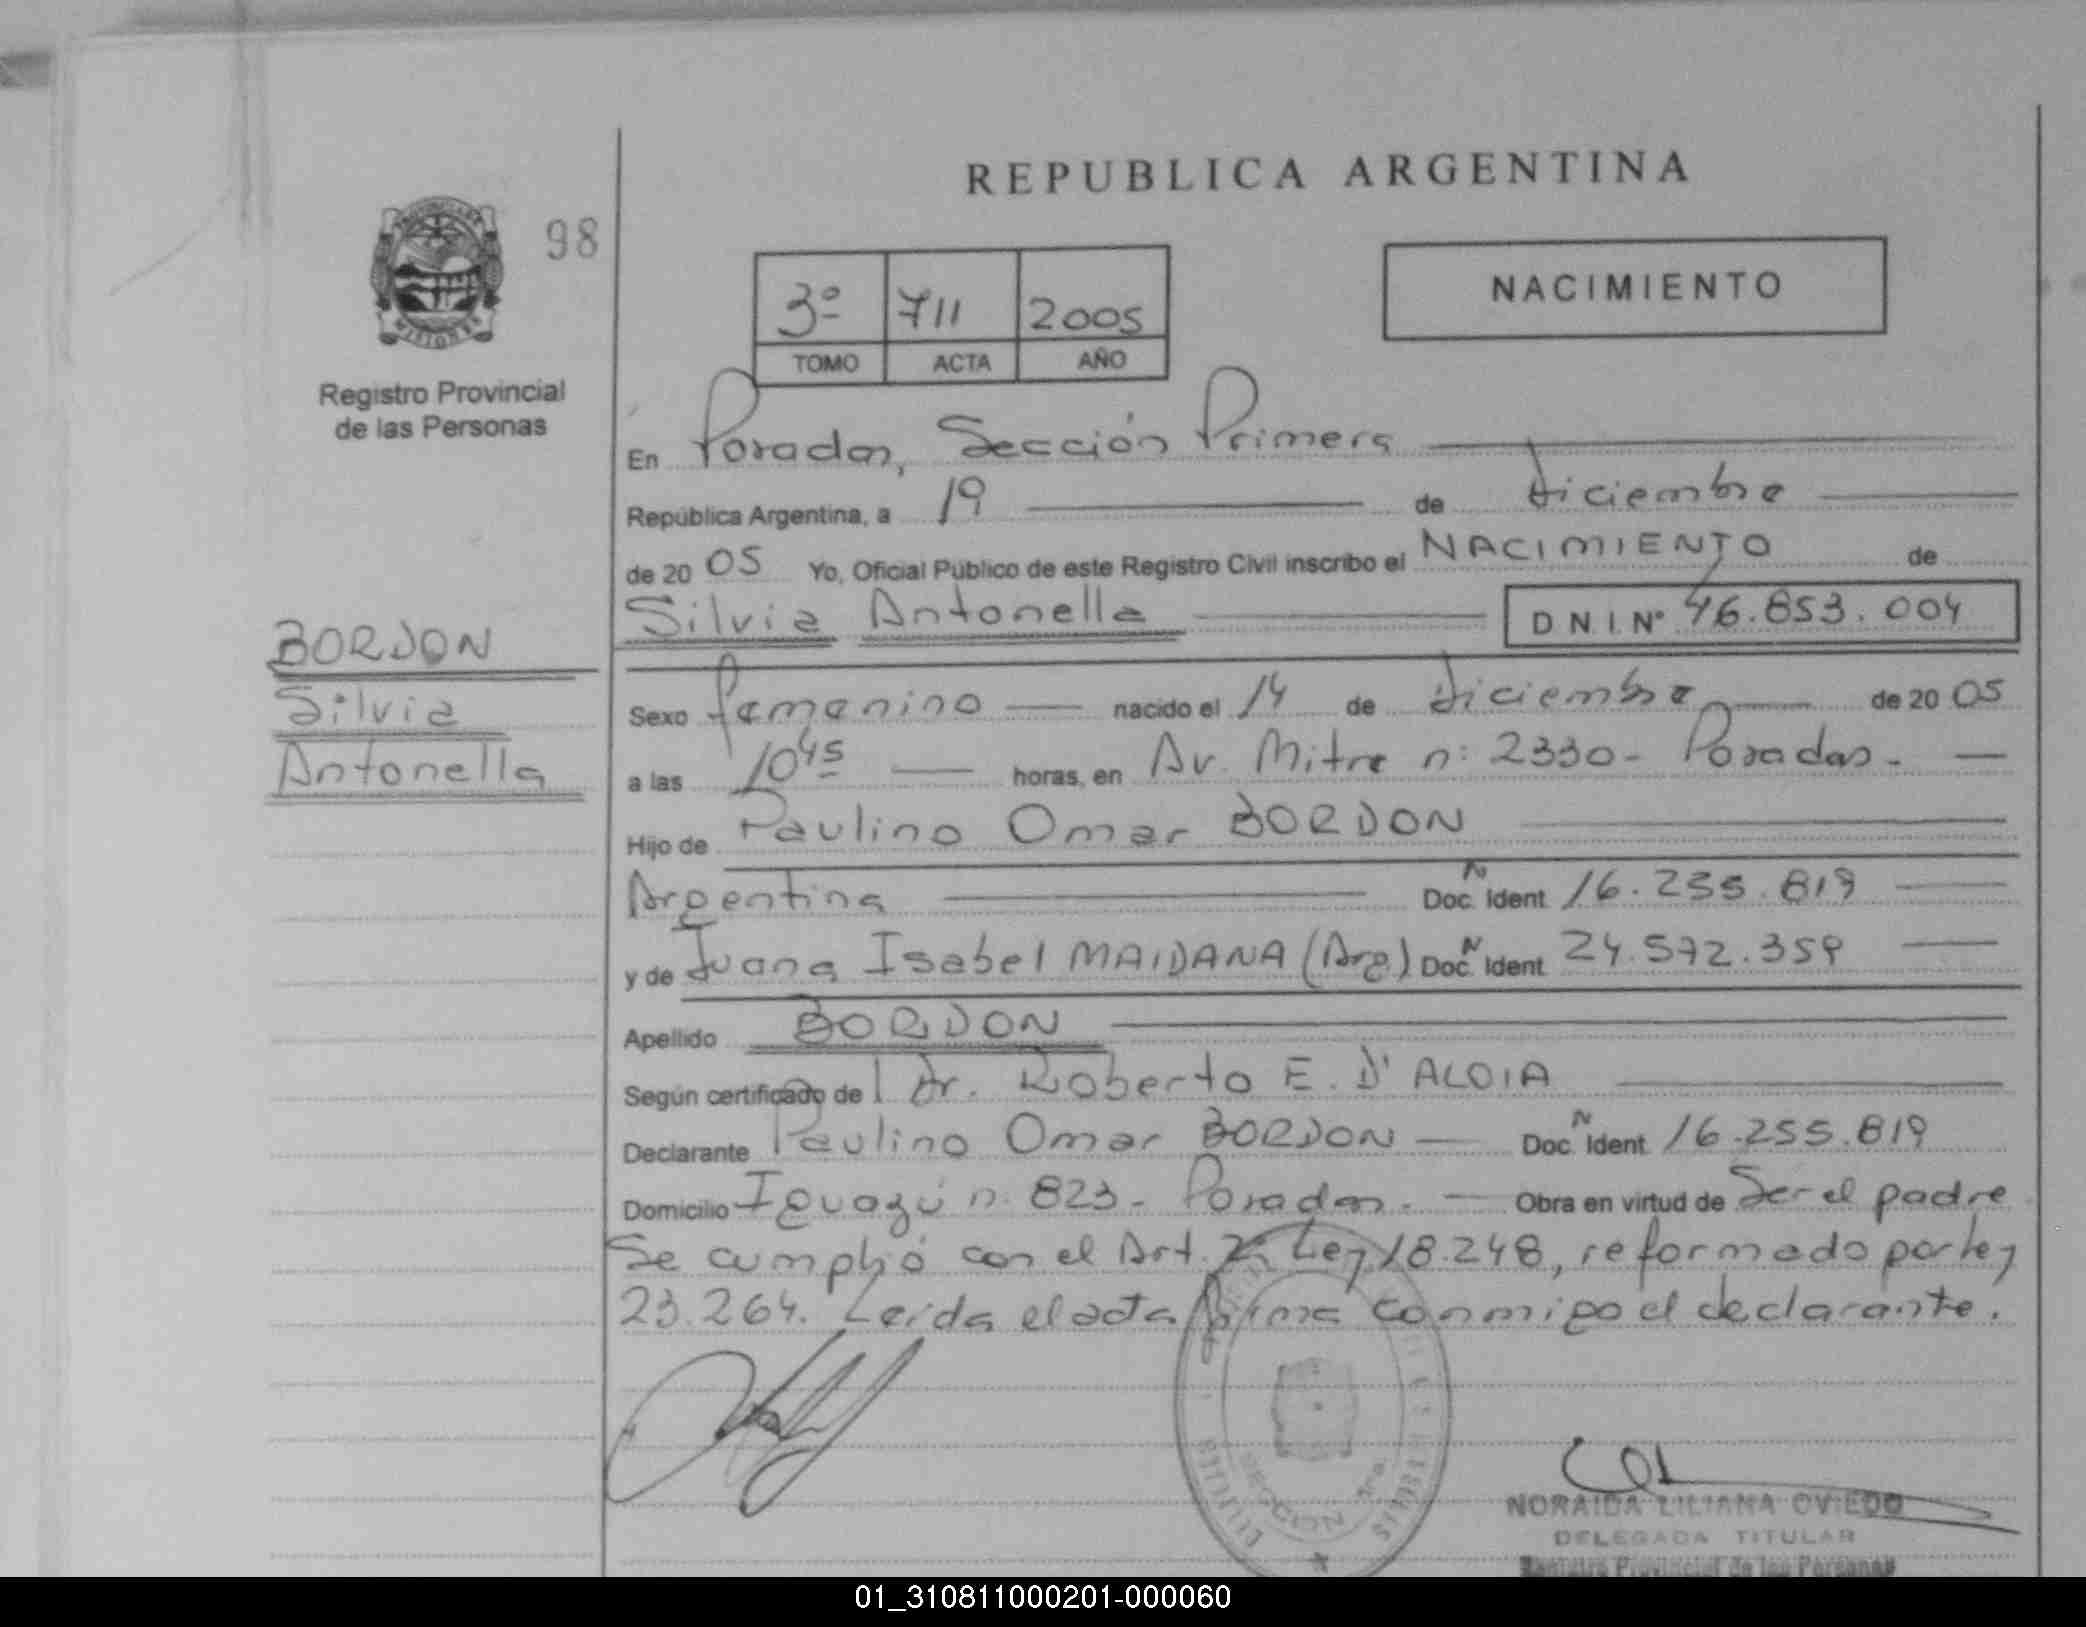 REPUBLICA ARGENTINA
98
NACIMIENTO
3º 711 2005
TOMO ACTA AÑO
MISIONES
Registro Provincial
de las Personas
En Posadas, Sección Primera
República Argentina, a 19 de diciembre
de 20 05 Yo, Oficial Público de este Registro Civil inscribo el NACIMIENTO de
Silvia Antonella D N. I. Nº 46.853.004
BORDON
Silvia
Antonella
Sexo femenino nacido el 14 de diciembre de 20 05
a las 10 45 horas, en Av. Mitre n: 2330- Posadas.
Hijo de Paulino Omar BORDON
Argentina Doc. N Ident 16.255.819
y de Juana Isabel MAIDANA (Arg) Doc. N Ident 24.572.359
Apellido BORDON
Según certificado de l Dr. Roberto E. D'ALOIA
Declarante Paulino Omar BORDON Doc. N Ident. 16.255.819
Domicilio Iguazú n. 823- Posadas. Obra en virtud de Ser el padre
Se cumplió con el Art. 2º Ley 18.248, reformado por ley
23.264. Leída el acta firma conmigo el declarante.
SECCION 1ra.
NORAIDA LILIANA OVIEDO
DELEGADA TITULAR
Registro Provincial de las Personas
01_310811000201-000060